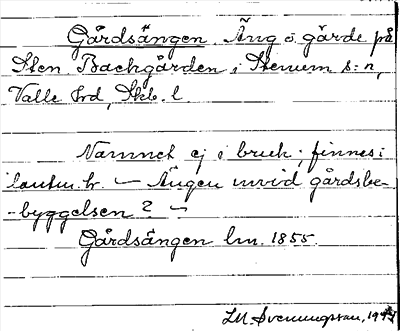 Gårdsängen. Äng o. gärde på
Sten Backgården i Stenum s:n,
Valle hrd, Skb. l.
Namnet ej i bruk; finnes i
lantm. hr. — Ängen invid gårdsbe-
-byggelsen? —
Gårdsängen lm. 1855.
LM. Svenungsson,